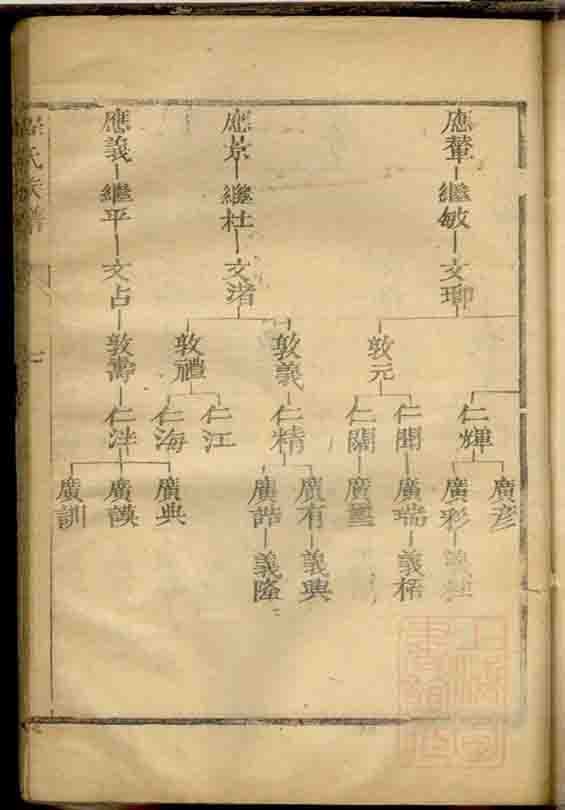 應
繼敏
文
敦元
仁輝
仁
仁
廣彥
廣彩
廣瑞
廣
義梧
應景
繼杜
文渚
敦義
敦禮
仁精
仁江
仁海
廣有
廣誥
義興
義隆
應義
繼平
文占
敦壽
仁法
廣典
廣謨
廣訓
氏族譜